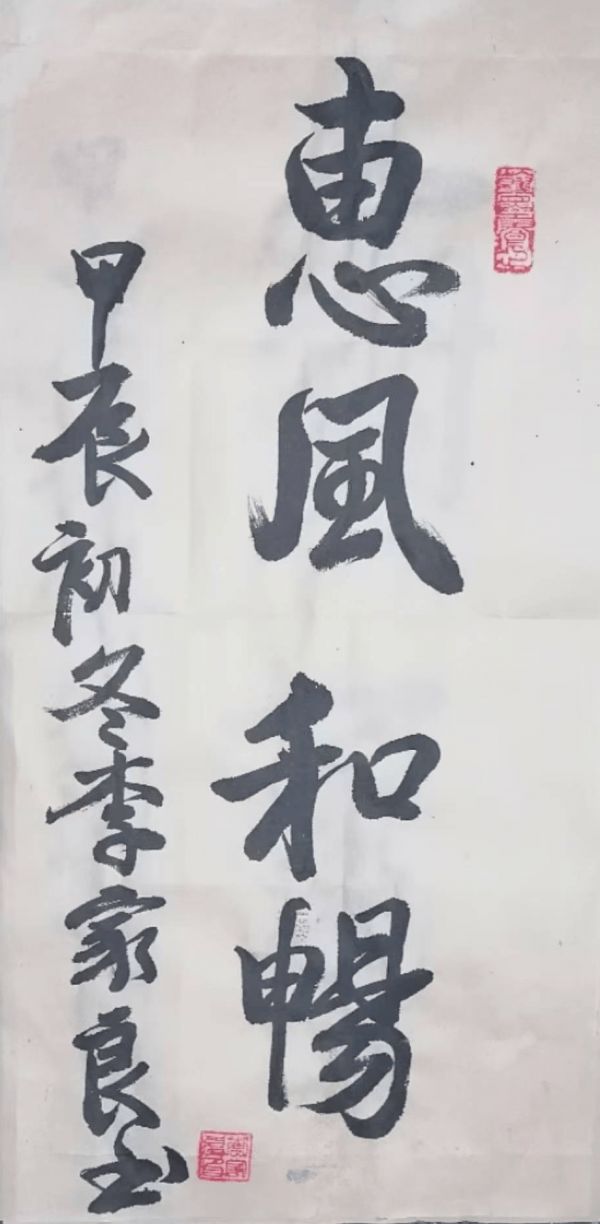 惠風和暢
甲辰初冬李家良书